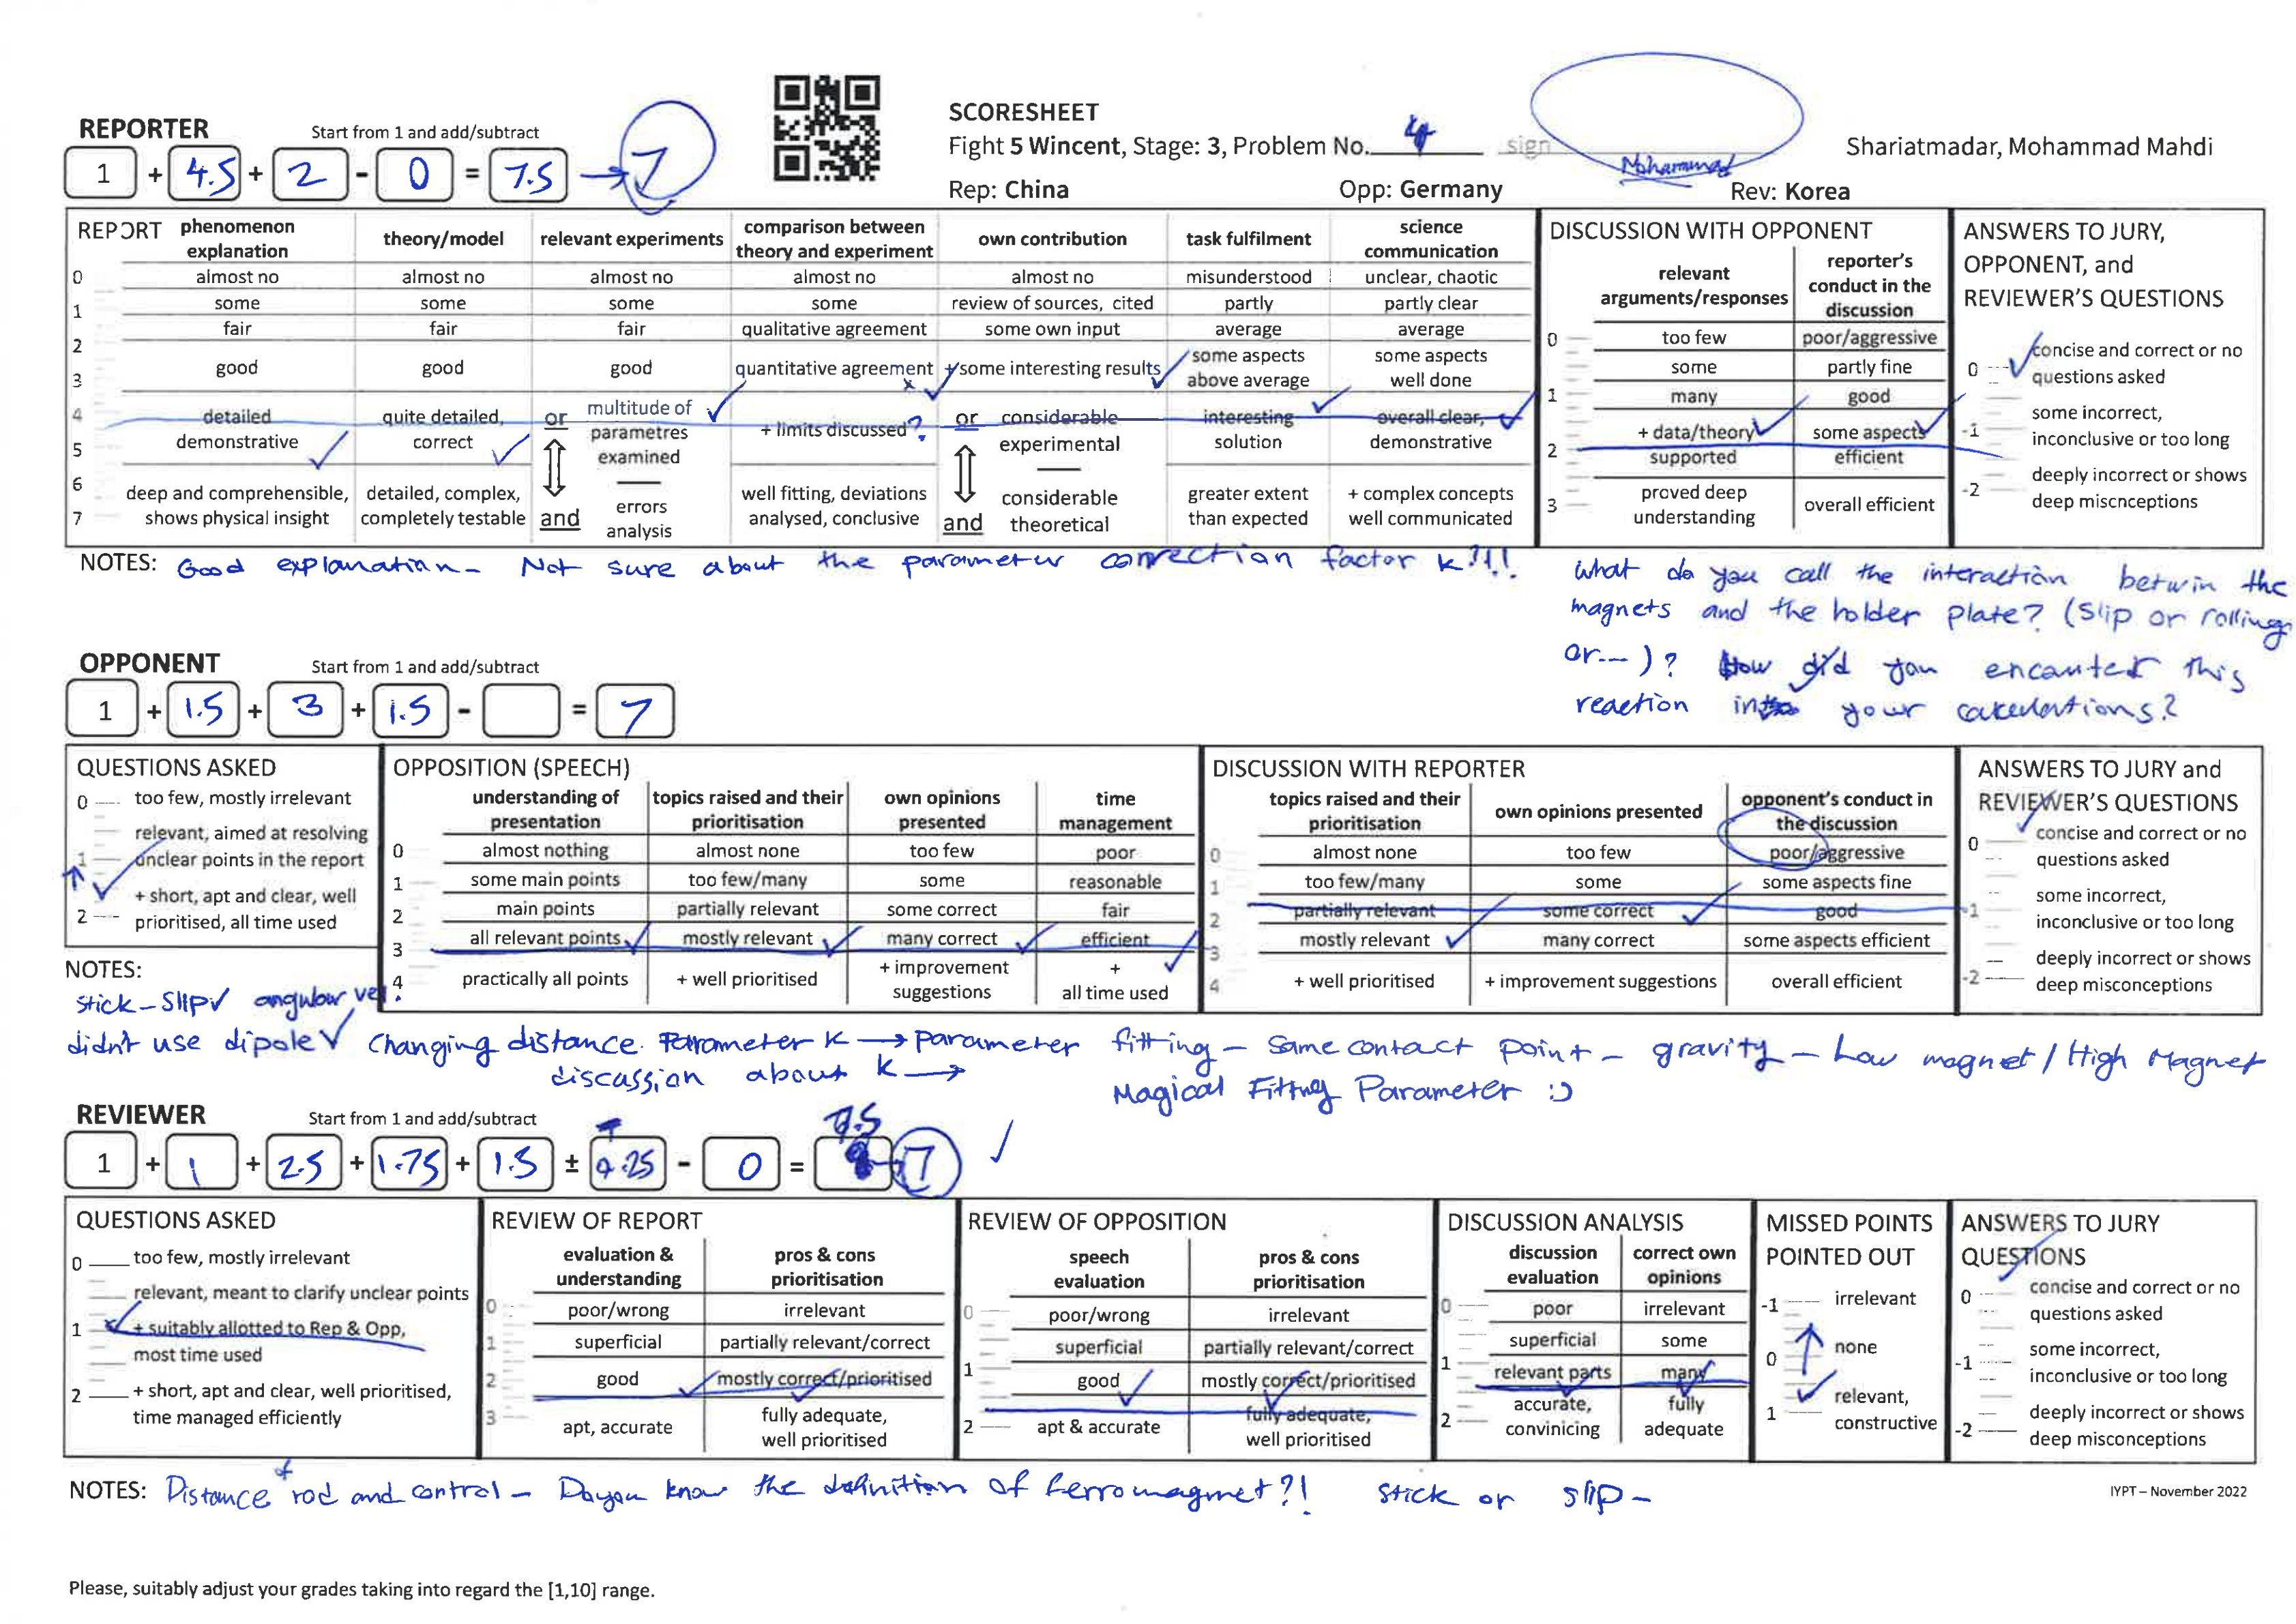 SCORESHEET
Fight 5 Wincent, Stage: 3, Problem No. 4 sign Mohammad Shariatmadar, Mohammad Mahdi
Rep: China Opp: Germany Rev: Korea
REPORTER Start from 1 and add/subtract
1 + 4.5 + 2 - 0 = 7.5 → 7
REPORT
phenomenon explanation
theory/model
relevant experiments
comparison between theory and experiment
own contribution
task fulfilment
science communication
0 almost no almost no almost no almost no almost no misunderstood unclear, chaotic
1 some some some some review of sources, cited partly partly clear
fair fair fair qualitative agreement some own input average average
2
good good good quantitative agreement some interesting results some aspects above average some aspects well done
3
4 detailed quite detailed, or multitude of + limits discussed ? or considerable interesting overall clear,
demonstrative correct parametres examined experimental solution demonstrative
5
6 deep and comprehensible, detailed, complex, well fitting, deviations considerable greater extent + complex concepts
7 shows physical insight completely testable and errors analysis analysed, conclusive and theoretical than expected well communicated
DISCUSSION WITH OPPONENT
relevant arguments/responses
reporter's conduct in the discussion
0 too few poor/aggressive
some partly fine
1 many good
+ data/theory some aspects
2 supported efficient
3 proved deep understanding overall efficient
ANSWERS TO JURY, OPPONENT, and REVIEWER'S QUESTIONS
0 concise and correct or no questions asked
-1 some incorrect, inconclusive or too long
-2 deeply incorrect or shows deep miscnceptions
NOTES: Good explanation - Not sure about the parameter correction factor k?!!!
What do you call the interaction betwin the
magnets and the holder plate? (Slip or rolling
or---)? How did you encanter this
reaction in your calculations?
OPPONENT Start from 1 and add/subtract
1 + 1.5 + 3 + 1.5 - = 7
QUESTIONS ASKED
0 too few, mostly irrelevant
relevant, aimed at resolving
1 unclear points in the report
+ short, apt and clear, well
2 prioritised, all time used
OPPOSITION (SPEECH)
understanding of presentation
topics raised and their prioritisation
own opinions presented
time management
0 almost nothing almost none too few poor
1 some main points too few/many some reasonable
2 main points partially relevant some correct fair
3 all relevant points mostly relevant many correct efficient
4 practically all points + well prioritised + improvement suggestions + all time used
DISCUSSION WITH REPORTER
topics raised and their prioritisation
own opinions presented
opponent's conduct in the discussion
0 almost none too few poor/aggressive
1 too few/many some some aspects fine
2 partially relevant some correct good
3 mostly relevant many correct some aspects efficient
4 + well prioritised + improvement suggestions overall efficient
ANSWERS TO JURY and REVIEWER'S QUESTIONS
0 concise and correct or no questions asked
-1 some incorrect, inconclusive or too long
-2 deeply incorrect or shows deep misconceptions
NOTES:
stick-slip angular vel.
didn't use dipole Changing distance. Parameter K → parameter fitting - same contact point - gravity - Low magnet / High Magnet
discussion about k → Magical Fitting Parameter :)
REVIEWER Start from 1 and add/subtract
1 + 1 + 2.5 + 1.75 + 1.5 ± 0.25 - 0 = 7.5 7
QUESTIONS ASKED
0 too few, mostly irrelevant
relevant, meant to clarify unclear points
1 + suitably allotted to Rep & Opp,
most time used
2 + short, apt and clear, well prioritised,
time managed efficiently
REVIEW OF REPORT
evaluation & understanding
pros & cons prioritisation
0 poor/wrong irrelevant
1 superficial partially relevant/correct
2 good mostly correct/prioritised
3 apt, accurate fully adequate, well prioritised
REVIEW OF OPPOSITION
speech evaluation
pros & cons prioritisation
0 poor/wrong irrelevant
superficial partially relevant/correct
1 good mostly correct/prioritised
2 apt & accurate fully adequate, well prioritised
DISCUSSION ANALYSIS
discussion evaluation
correct own opinions
0 poor irrelevant
superficial some
1 relevant parts many
2 accurate, convinicing fully adequate
MISSED POINTS POINTED OUT
-1 irrelevant
0 none
1 relevant, constructive
ANSWERS TO JURY QUESTIONS
0 concise and correct or no questions asked
-1 some incorrect, inconclusive or too long
-2 deeply incorrect or shows deep misconceptions
NOTES: Distance of rod and control - Do you know the definition of ferromagnet?! stick or slip -
IYPT – November 2022
Please, suitably adjust your grades taking into regard the [1,10] range.